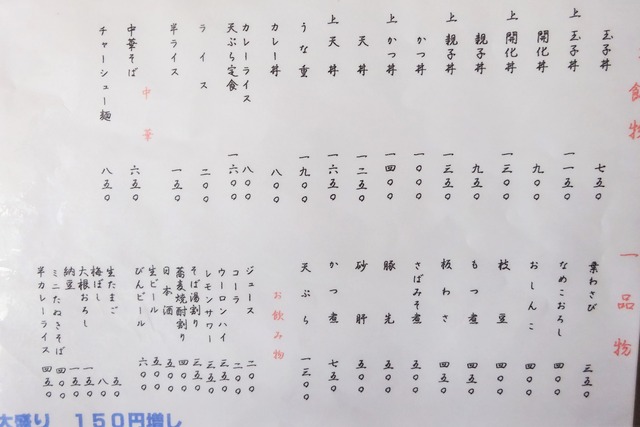 飯物
玉子丼 七五〇
上玉子丼 一一五〇
開化丼 九〇〇
上開化丼 一三〇〇
親子丼 九五〇
上親子丼 一三五〇
かつ丼 一〇〇〇
上かつ丼 一四〇〇
天丼 一二五〇
上天丼 一六五〇
うな重 一九〇〇
カレー丼 八〇〇
カレーライス 八〇〇
天ぷら定食 一六〇〇
ライス 二〇〇
半ライス 一五〇
中華
中華そば 六五〇
チャーシュー麺 八五〇
一品物
葉わさび 三五〇
なめこおろし 四〇〇
おしんこ 四〇〇
枝豆 四〇〇
もつ煮 四五〇
板わさ 四五〇
さばみそ煮 五〇〇
豚足 五〇〇
砂肝 五〇〇
かつ煮 七五〇
天ぷら 一三〇〇
お飲み物
ジュース 二〇〇
コーラ 二〇〇
ウーロンハイ 三五〇
レモンサワー 三五〇
そば湯割り 三五〇
蕎麦焼酎割り 四〇〇
日本酒
生ビール 五〇〇
びんビール 六〇〇
生たまご 五〇
梅ぼし 八〇
大根おろし 一五〇
納豆 一五〇
ミニたぬきそば 四〇〇
半カレーライス 四五〇
大盛り 150円増し